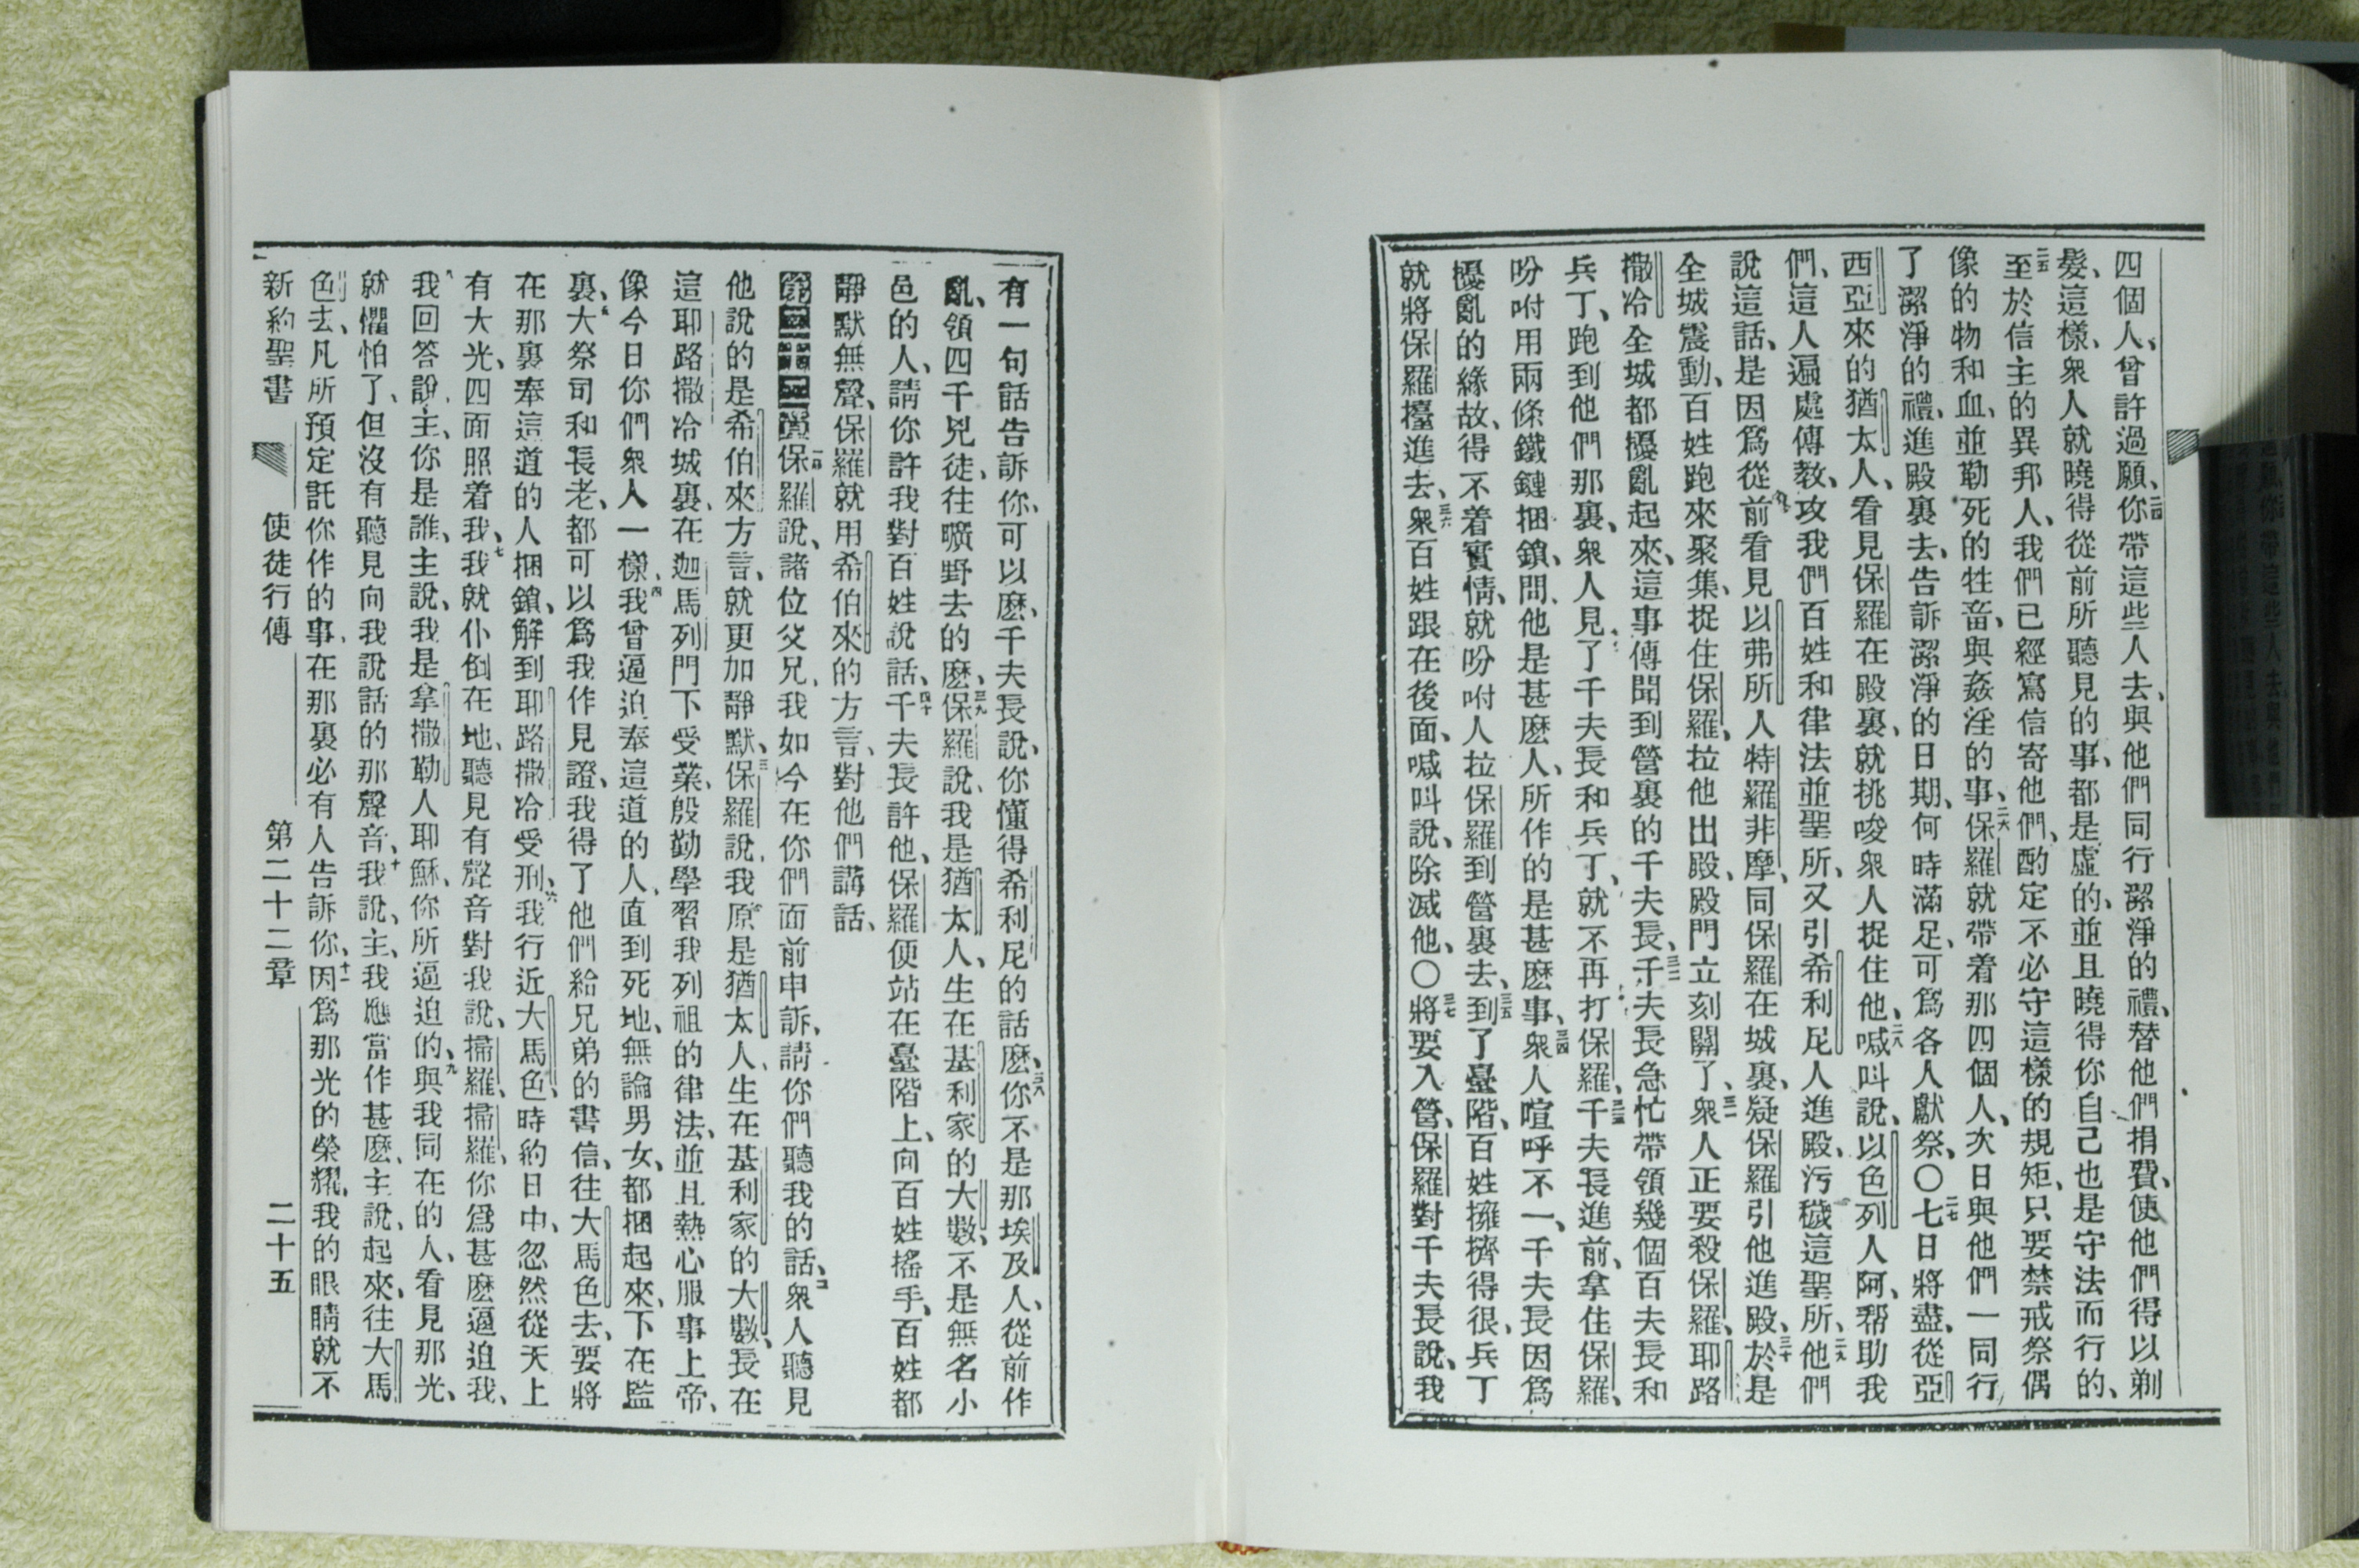 四個人、曾許過願、二四你帶這些人去、與他們同行潔淨的禮、替他們捐費、使他們得以剃
髮、這樣、衆人就曉得從前所聽見的事、都是虛的、並且曉得你自己也是守法而行的、
二五至於信主的異邦人、我們已經寫信寄他們、酌定不必守這樣的規矩、只要禁戒祭偶
像的物和血、並勒死的牲畜、與姦淫的事、二六保羅就帶着那四個人、次日與他們一同行
了潔淨的禮、進殿裏去、告訴潔淨的日期、何時滿足、可爲各人獻祭、〇二七七日將盡、從亞
西亞來的猶太人、看見保羅在殿裏、就挑唆衆人捉住他、二八喊叫說、以色列人阿、帮助我
們、這人遍處傳教、攻我們百姓和律法並聖所、又引希利尼人進殿、污穢這聖所、二九他們
說這話、是因爲從前看見以弗所人特羅非摩、同保羅在城裏、疑保羅引他進殿、三十於是
全城震動、百姓跑來聚集、捉住保羅、拉他出殿、殿門立刻關了、三一衆人正要殺保羅、耶路
撒冷全城都擾亂起來、這事傳聞到營裏的千夫長、三二千夫長急忙帶領幾個百夫長和
兵丁、跑到他們那裏、衆人見了千夫長和兵丁、就不再打保羅、三三千夫長進前、拿住保羅、
吩咐用兩條鐵鏈捆鎖、問他是甚麽人、所作的是甚麽事、三四衆人喧呼不一、千夫長因爲
擾亂的緣故、得不着實情、就吩咐人拉保羅到營裏去、三五到了臺階、百姓擁擠得很、兵丁
就將保羅擡進去、三六衆百姓跟在後面、喊叫說、除滅他、〇三七將要入營、保羅對千夫長說、我
有一句話告訴你、可以麽、千夫長說、你懂得希利尼的話麽、三八你不是那埃及人、從前作
亂、領四千兇徒、往曠野去的麽、三九保羅說、我是猶太人、生在基利家的大數、不是無名小
邑的人、請你許我對百姓說話、四十千夫長許他、保羅便站在臺階上、向百姓搖手、百姓都
靜默無聲、保羅就用希伯來的方言、對他們講話、
第二十二章一節保羅說、諸位父兄、我如今在你們面前申訴、請你們聽我的話、二衆人聽見
他說的是希伯來方言、就更加靜默、三保羅說、我原是猶太人、生在基利家的大數、長在
這耶路撒冷城裏、在迦馬列門下受業、殷勤學習我列祖的律法、並且熱心服事上帝、
像今日你們衆人一樣、四我曾逼迫奉這道的人、直到死地、無論男女、都捆起來、下在監
裏、五大祭司和長老、都可以爲我作見證、我得了他們給兄弟的書信、往大馬色去、要將
在那裏奉這道的人捆鎖、解到耶路撒冷受刑、六我行近大馬色、時約日中、忽然從天上
有大光、四面照着我、七我就仆倒在地、聽見有聲音對我說、掃羅、掃羅、你爲甚麽逼迫我、
八我回答說、主、你是誰、主說、我是拿撒勒人耶穌、你所逼迫的、九與我同在的人、看見那光、
就懼怕了、但沒有聽見向我說話的那聲音、十我說、主、我應當作甚麽、主說、起來、往大馬
色去、凡所預定託你作的事、在那裏必有人告訴你、十一因爲那光的榮耀、我的眼睛就不
新約聖書 使徒行傳 第二十二章 二十五